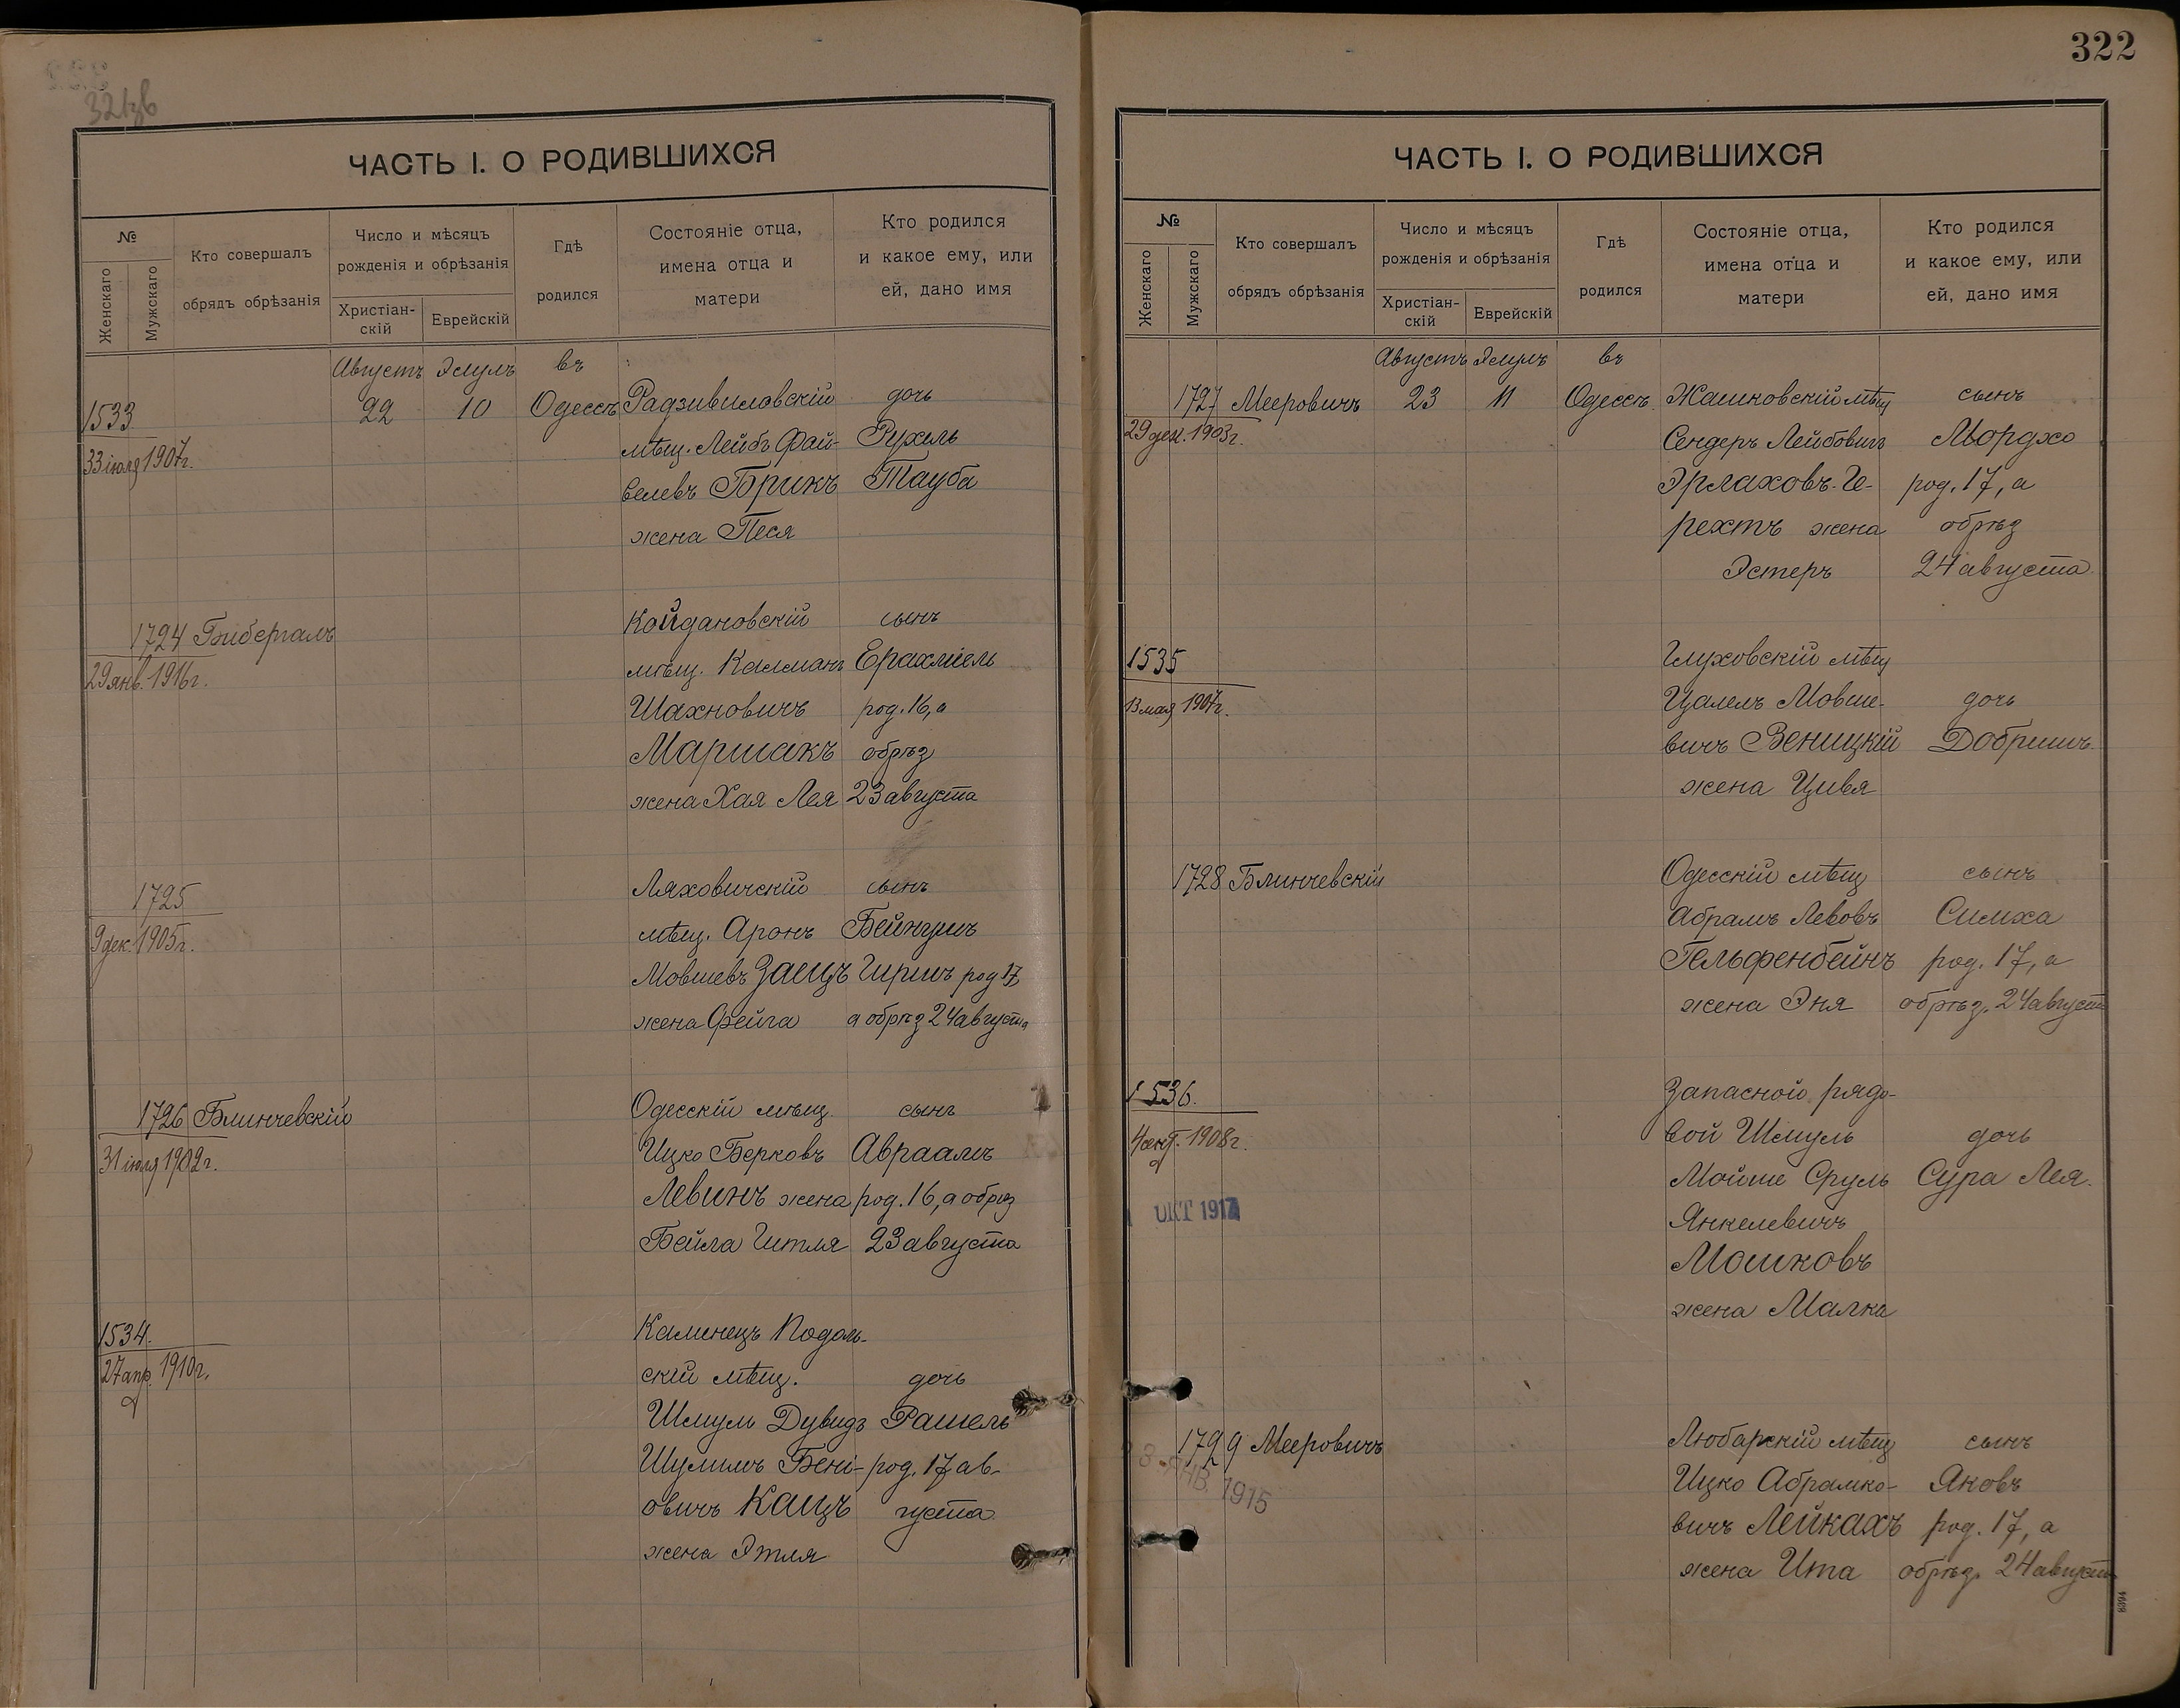 321об
ЧАСТЬ I. О РОДИВШИХСЯ
№
Женскаго
Мужскаго
Кто совершалъ
обрядъ обрѣзанія
Число и мѣсяцъ
рожденія и обрѣзанія
Христіан-
скій
Еврейскій
Гдѣ
родился
Состояніе отца,
имена отца и
матери
Кто родился
и какое ему, или
ей, дано имя
Августъ Элулъ въ
1533 22 10 Одессѣ Радзивиловскій дочь
мѣщ. Лейбъ Фай- Рухель
33 іюля 1907г.
велевъ Брикъ Тауба
жена Песя
Койдановскій сынъ
1794 Бибергалъ
мѣщ. Калманъ Ерахміель
29 янв. 1916г.
Шахновичъ род. 16, а
Маршакъ обрѣз
жена Хая Лея 23 августа
1725 Ляховичскій сынъ
мѣщ. Аронъ Бейнушъ
9 дек. 1905г.
Мовшевъ Заецъ Гиршъ род 17
жена Фейга а обрѣз 24 августа
1726 Блинчевскій Одесскій мѣщ. сынъ
31 іюля 1912г. Ицко Берковъ Авраамъ
Левинъ жена род. 16, а обрѣз
Бейла Гитля 23 августа
1534. Каменецъ Подоль-
27 апр. 1910г. скій мѣщ. дочь
Шмуль Дувидъ Рашель
Шулимъ Бені- род. 17 ав-
овичъ Кацъ густа
жена Этля
322
ЧАСТЬ I. О РОДИВШИХСЯ
№
Женскаго
Мужскаго
Кто совершалъ
обрядъ обрѣзанія
Число и мѣсяцъ
рожденія и обрѣзанія
Христіан-
скій
Еврейскій
Гдѣ
родился
Состояніе отца,
имена отца и
матери
Кто родился
и какое ему, или
ей, дано имя
Августъ Элулъ въ
1727 Мееровичъ 23 11 Одессѣ Жашковскій мѣщ сынъ
29 дек. 1903г. Сендеръ Лейбовичъ Мордхо
Эрлаховъ-Ге- род. 17, а
рехтъ жена обрѣз
Эстеръ 24 августа
1535 Глуховскій мѣщ
13 мая 1907г. Цалелъ Мовше- дочь
вичъ Зеницкій Добришъ
жена Цивя
1728 Блинчевскій Одесскій мѣщ сынъ
Абрамъ Левовъ Симха
Гельфенбейнъ род. 17, а
жена Эня обрѣз. 24 августа
1536. Запасной рядо-
4 сент. 1908г. вой Шмуль дочь
Мойше Сруль Сура Лея.
ОКТ 1917
Янкелевичъ
Мошковъ
жена Малка
1729 Мееровичъ Любарскій мѣщ сынъ
ЯНВ. 1915
Ицко Абрамко- Яковъ
вичъ Лейкахъ род. 17, а
жена Ита обрѣз. 24 августа
8394